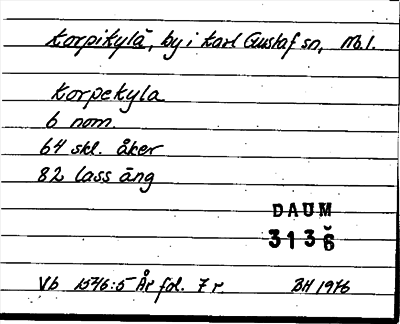 Korpikylä, by i Karl Gustaf sn, Nb.l.
Korpekyla
6 nom.
64 skl. åker
82 lass äng
DAUM
3136
Vb 1546:5 År fol. 7 r BH 1976